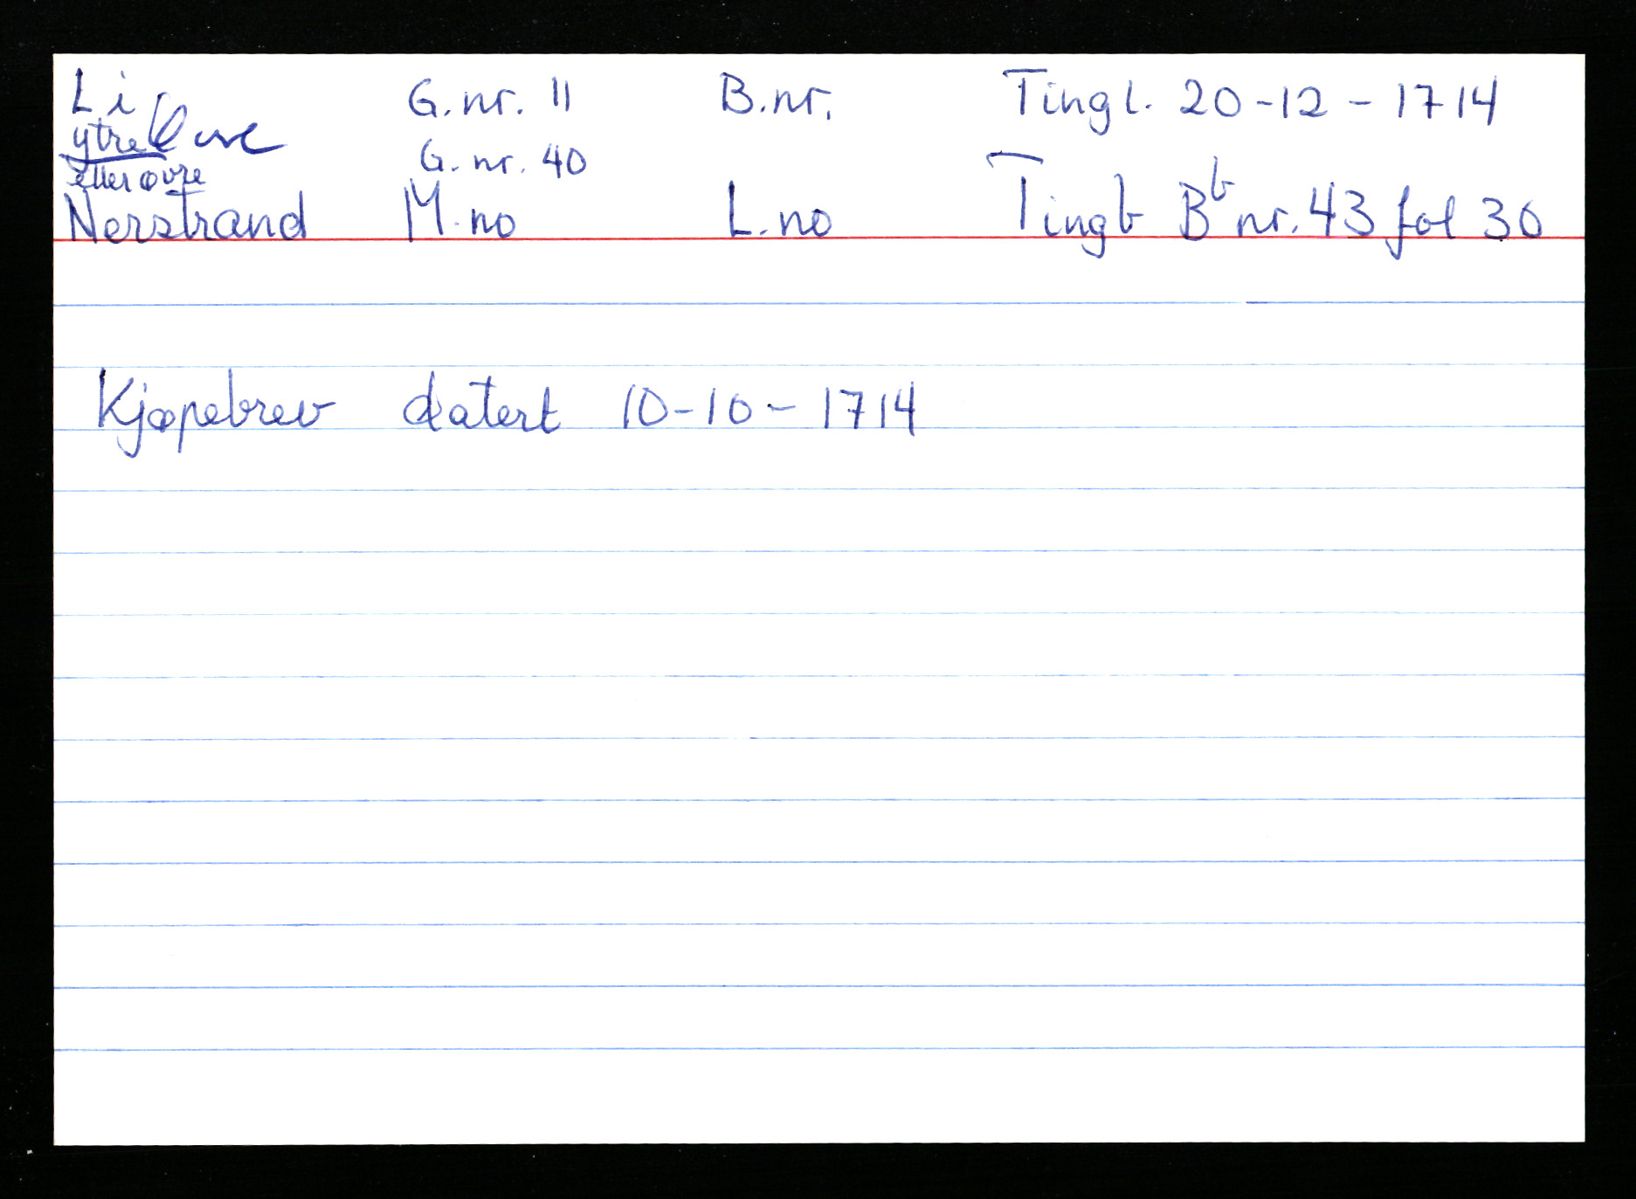 Li G.nr. 11 B.nr. Tingl. 20-12-1714
ytre G.nr. 40
eller øvre
Nerstrand M.no L.no Tingb Bb nr. 43 fol 30
Kjøpebrev datert 10-10-1714